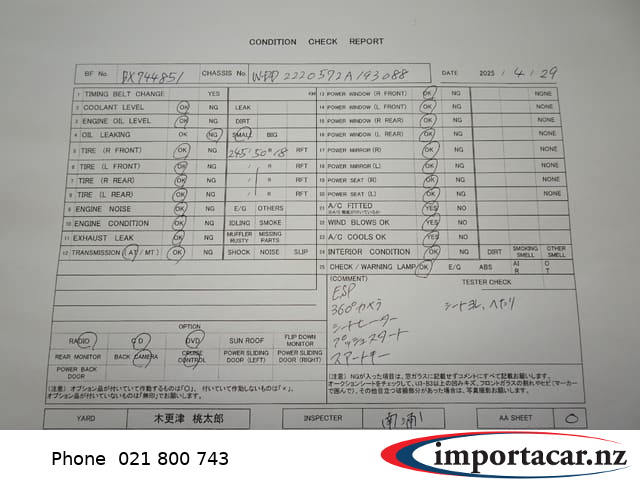 CONDITION CHECK REPORT
BF No. BX74485/ CHASSIS No. WDD2220572A193088 DATE 2025 / 4 / 29
1 TIMING BELT CHANGE YES KM
2 COOLANT LEVEL OK NG LEAK
3 ENGINE OIL LEVEL OK NG DIRT
4 OIL LEAKING OK NG SMALL BIG
5 TIRE (R FRONT) OK NG 245/50 R 18 RFT
6 TIRE (L FRONT) OK NG / R RFT
7 TIRE (R REAR) OK NG / R RFT
8 TIRE (L REAR) OK NG / R RFT
9 ENGINE NOISE OK NG E/G OTHERS
10 ENGINE CONDITION OK NG IDLING SMOKE
11 EXHAUST LEAK OK NG MUFFLER RUSTY MISSING PARTS
12 TRANSMISSION (AT/MT) OK NG SHOCK NOISE SLIP
13 POWER WINDOW (R FRONT) OK NG NONE
14 POWER WINDOW (L FRONT) OK NG NONE
15 POWER WINDOW (R REAR) OK NG NONE
16 POWER WINDOW (L REAR) OK NG NONE
17 POWER MIRROR (R) OK NG NONE
18 POWER MIRROR (L) OK NG NONE
19 POWER SEAT (R) OK NG NONE
20 POWER SEAT (L) OK NG NONE
21 A/C FITTED YES NG
22 WIND BLOWS OK YES NG
23 A/C COOLS OK YES NG
24 INTERIOR CONDITION OK NG DIRT SMOKING SMELL OTHER SMELL
25 CHECK / WARNING LAMP OK E/G ABS AI R O T
(COMMENT) TESTER CHECK
ESP
360°カメラ
シートヒーター
プッシュスタート
スマートキー
シートヨレ、へたり
OPTION
RADIO CD DVD SUN ROOF FLIP DOWN MONITOR
REAR MONITOR BACK CAMERA CRUISE CONTROL POWER SLIDING DOOR (LEFT) POWER SLIDING DOOR (RIGHT)
POWER BACK DOOR
(注意) オプション品が付いていて作動するものは「○」、付いていて作動しないものは「×」、
オプション品が付いていないものは「無印」でお願いします。
(注意) NGが入った項目は、窓ガラスに記載せずコメントにすべて記載お願いします。
オークションシートをチェックして、U3・B3以上の凹みキズ、フロントガラスの割れやヒビ(マーカー
で囲んで)、その他目立つ破損部分があった場合は、写真撮影お願いします。
YARD 木更津 桃太郎 INSPECTER 南浦 AA SHEET 0
Phone 021 800 743
importacar.nz